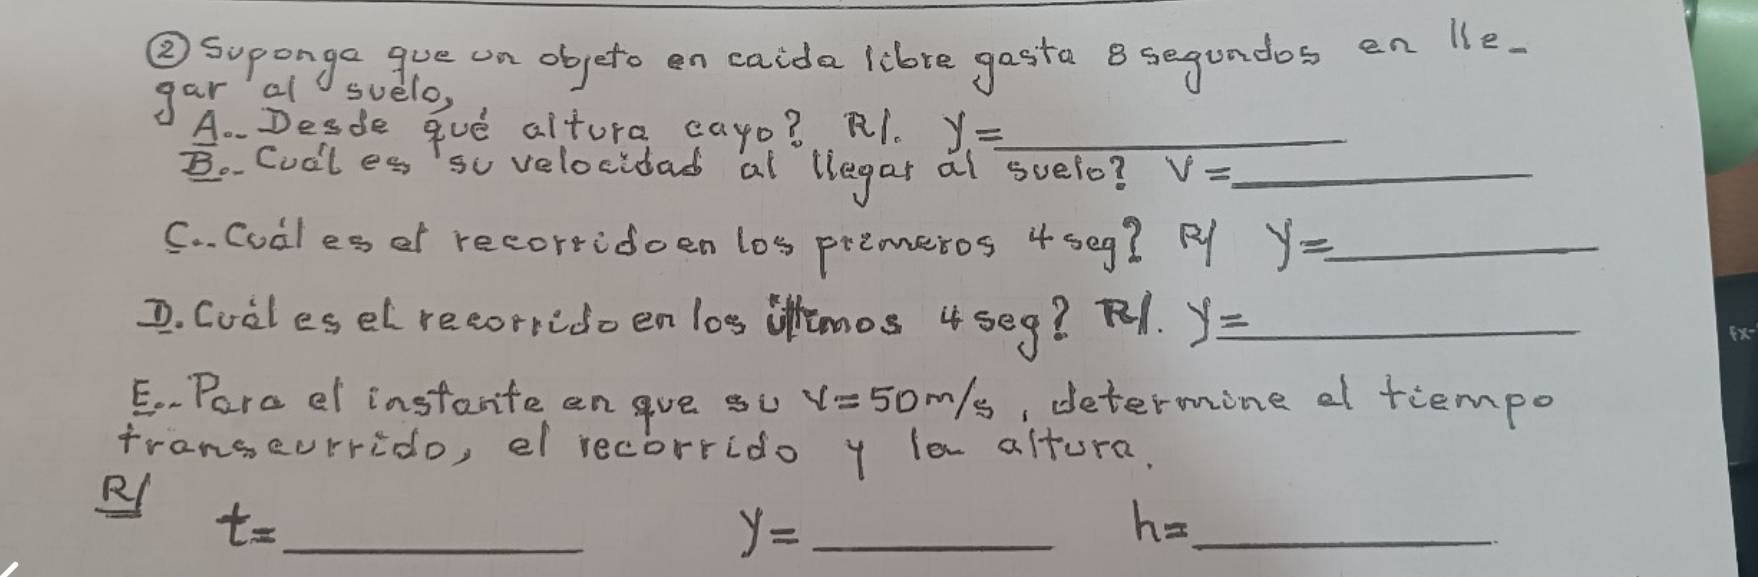 ② Suponga que un objeto en caida libre gasta 8 segundos en lle-
gar al suelo,
A..- Desde qué altura cayo? R/. y=
B..- Cuál es su velocidad al llegar al suelo? V=
C..- Cuál es el recorrido en los primeros 4 seg? R/ y=
D. Cuál es el recorrido en los últimos 4 seg? R/. y=
E..- Para el instante en que su V=50m/s, determine el tiempo
transcurrido, el recorrido y la altura.
R/
t= y= h=
fx-